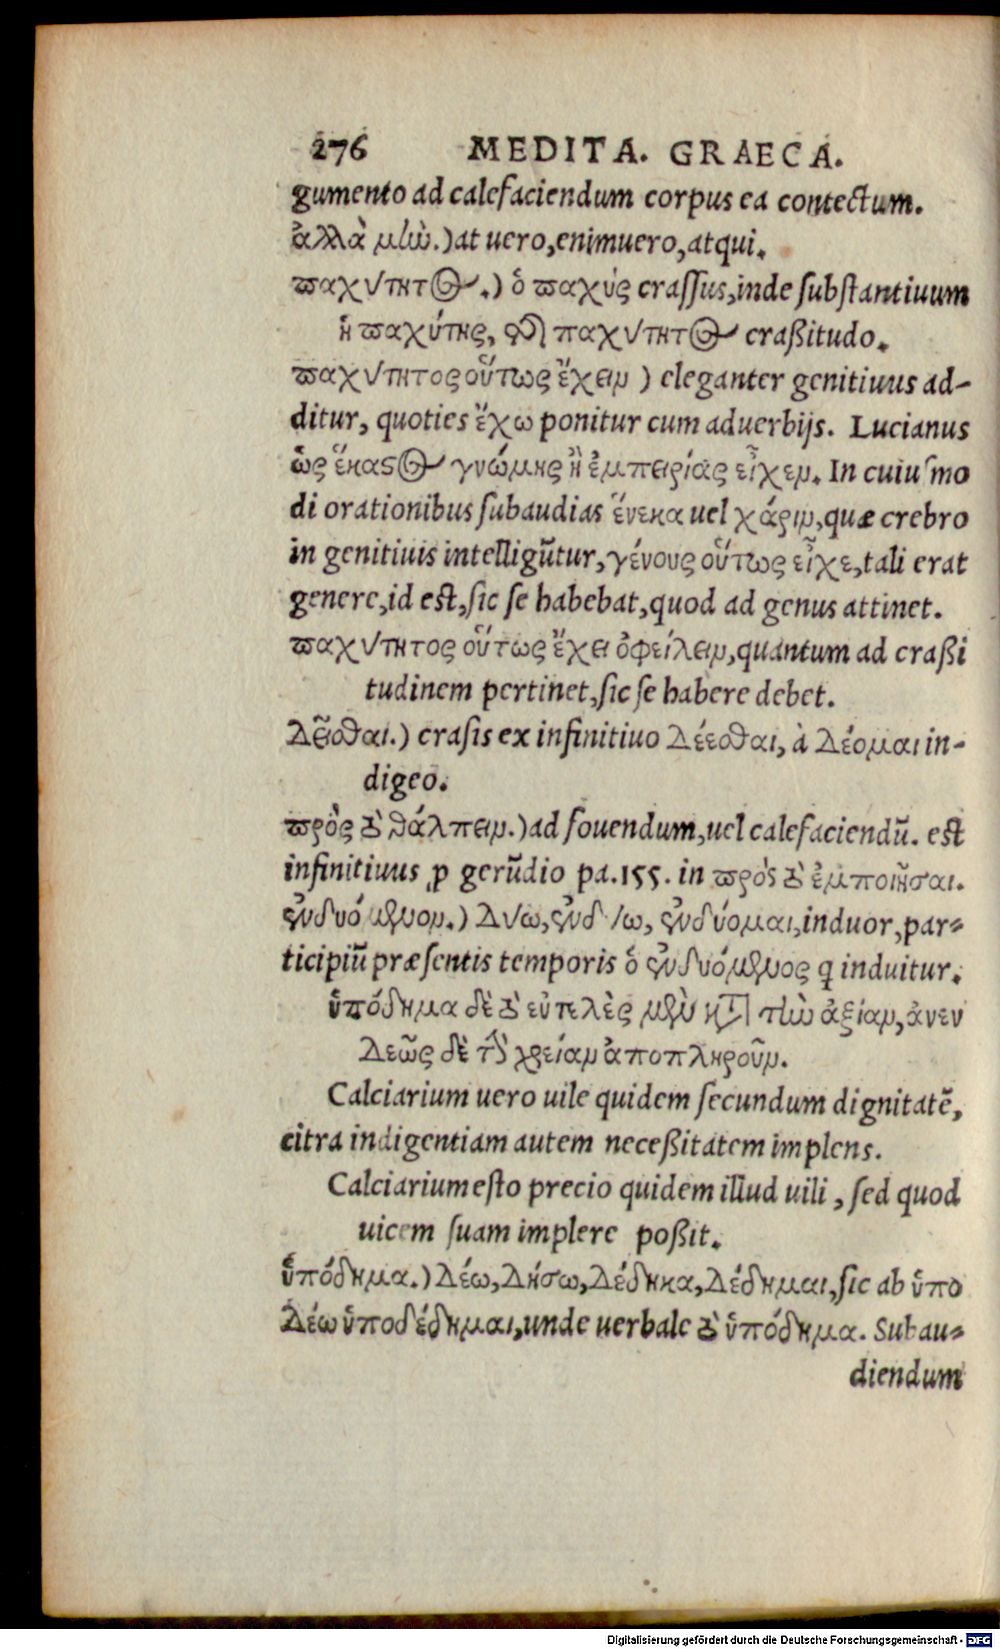 276 MEDITA. GRAECA.
gumento ad calefaciendum corpus ea contectum.
ἀλλὰ μὴν.) at uero, enimuero, atqui.
παχύτητος.) ὁ παχύς crassus, inde substantiuum
ἡ παχύτης, τῆς παχύτητος craßitudo.
παχύτητος οὕτως ἔχειν ) eleganter genitiuus ad-
ditur, quoties ἔχω ponitur cum aduerbijs. Lucianus
ὡς ἕκαστος γνώμης ἢ ἐμπειρίας εἶχεν. In cuiusmo
di orationibus subaudias ἕνεκα uel χάριν, quæ crebro
in genitiuis intelligūtur, γένους οὕτως εἶχε, tali erat
genere, id est, sic se habebat, quod ad genus attinet.
παχύτητος οὕτως ἔχει ὀφείλειν, quantum ad craßi
tudinem pertinet, sic se habere debet.
δεῖσθαι.) crasis ex infinitiuo δέεσθαι, à δέομαι in-
digeo.
πρὸς τὸ θάλπειν.) ad fouendum, uel calefaciendū. est
infinitiuus ꝓ gerūdio pa. 155. in πρὸς τὸ ἐμποιῆσαι.
ἐνδυόμενον.) δύω, ἐνδύω, ἐνδύομαι, induor, par-
ticipiū præsentis temporis ὁ ἐνδυόμενος q̃ induitur.
ὑπόδημα δὲ τὸ εὐτελὲς μὲν κατὰ τὴν ἀξίαν, ἀνεν
δεῶς δὲ τὴν χρείαν ἀποπληροῦν.
Calciarium uero uile quidem secundum dignitatē,
citra indigentiam autem neceßitatem implens.
Calciarium esto precio quidem illud uili, sed quod
uicem suam implere poßit.
ὑπόδημα.) δέω, δήσω, δέδηκα, δέδημαι, sic ab ὑπο
δέω ὑποδέδημαι, unde uerbale τὸ ὑπόδημα. Subau-
diendum
Digitalisierung gefördert durch die Deutsche Forschungsgemeinschaft - DFG